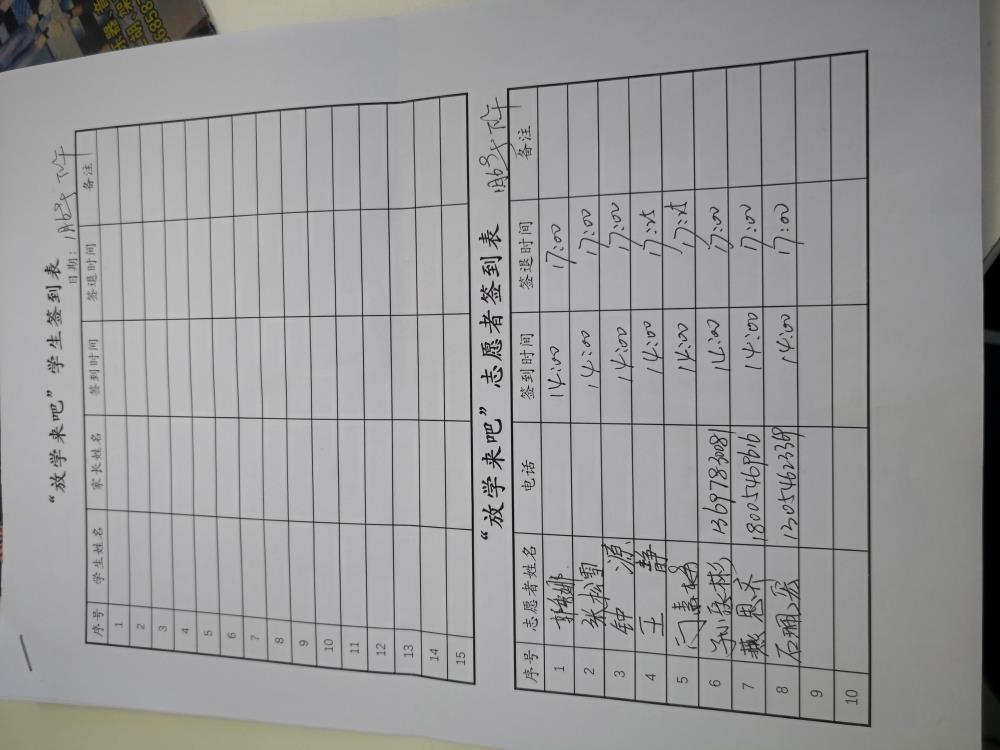 “放学来吧”学生签到表
日期：1月63日下午
序号 学生姓名 家长姓名 签到时间 签退时间 备注
1
2
3
4
5
6
7
8
9
10
11
12
13
14
15
“放学来吧”志愿者签到表
下午
序号 志愿者姓名 电话 签到时间 签退时间 备注
1 郭娜 14:00 17:00
2 张松雪 14:00 17:00
3 钟源 14:00 17:00
4 王静 14:00 17:25
5 14:00 17:25
6 孙欣彬 13697833081 14:00 17:00
7 燕思齐 18005469616 14:00 17:00
8 石珮奕 13054623369 14:00 17:00
9
10